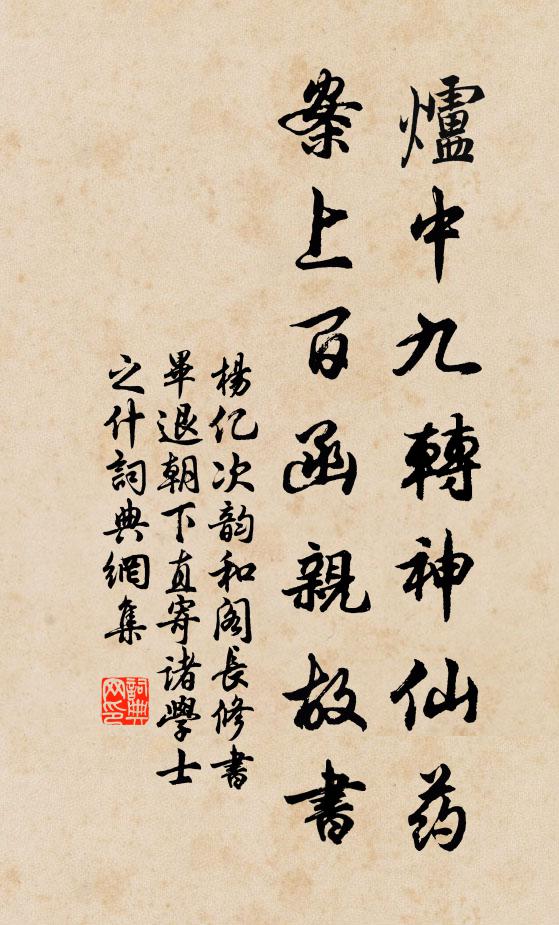 爐中九轉神仙药
案上百函親故書
楊亿次韵和阁長修書
畢退朝下直寄诸學士
之什詞典網集
詞典网印